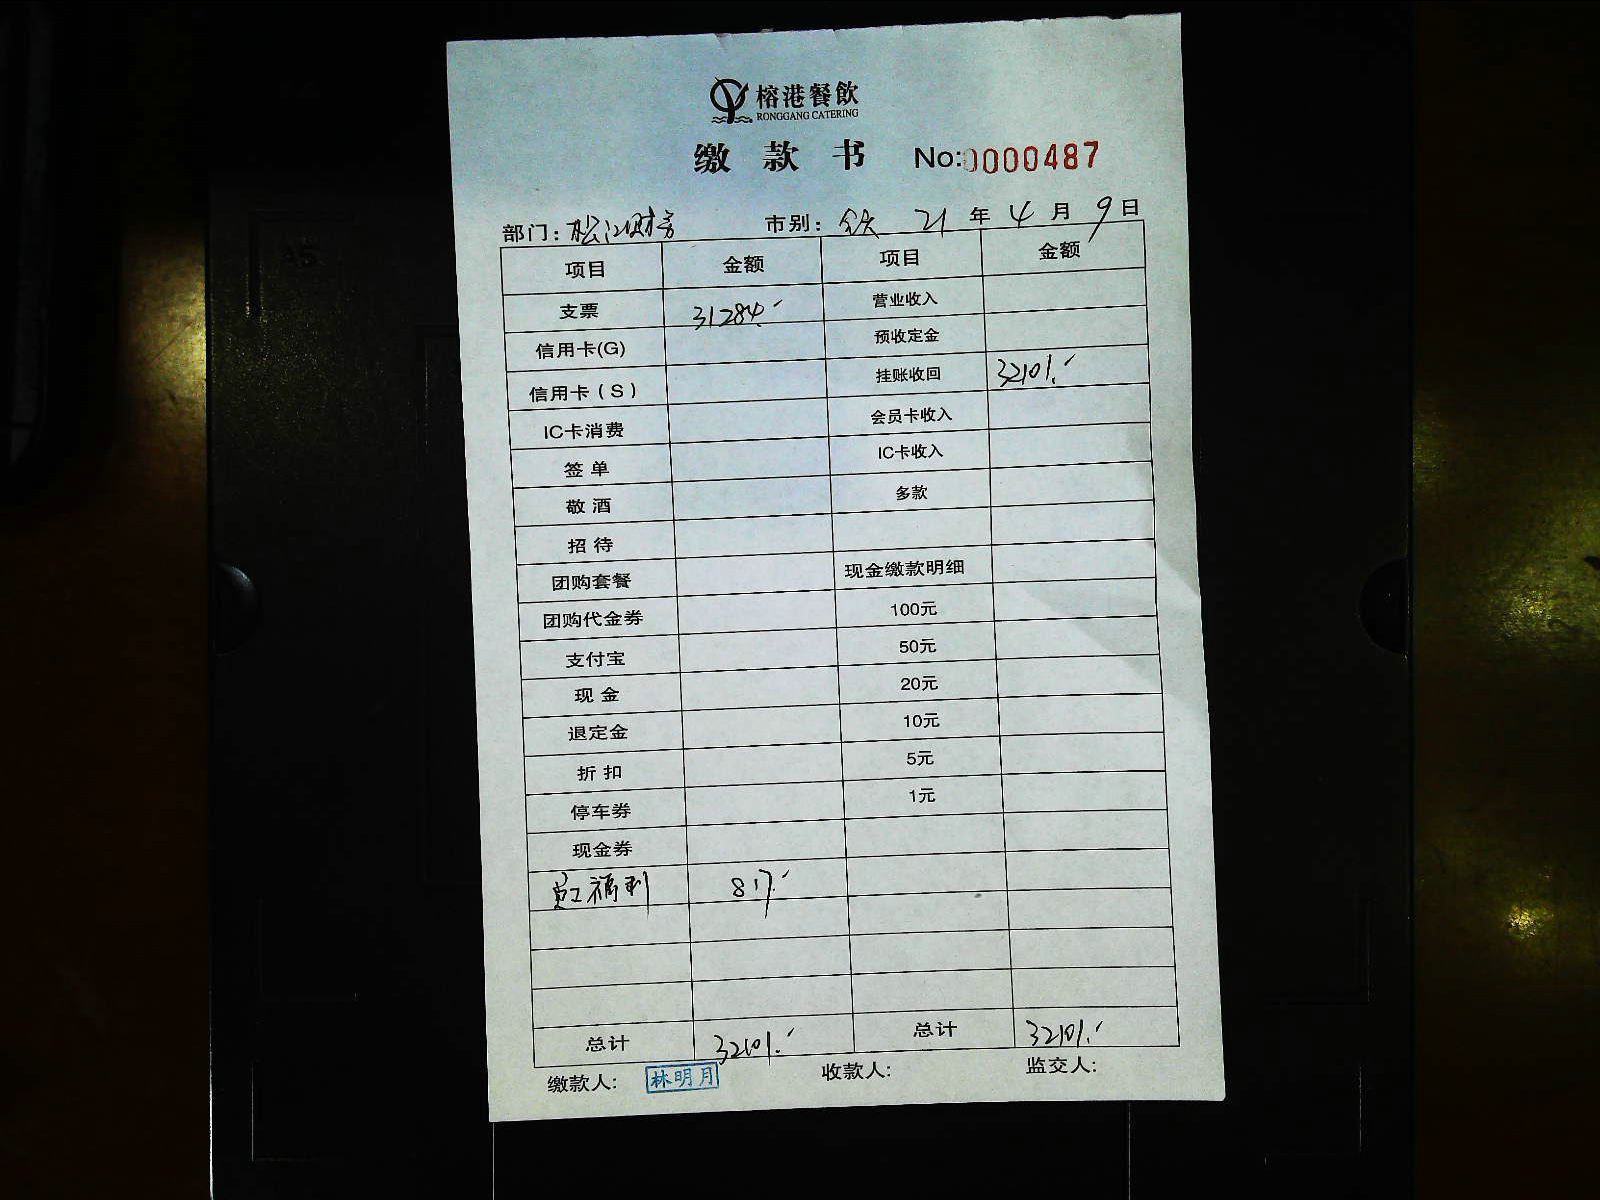 榕港餐飲
RONGGANG CATERING
缴款书 No:0000487
部门：松江财务 市别：全天 21年4月9日
项目 金额 项目 金额
支票 31284.- 营业收入
信用卡(G) 预收定金
信用卡（S） 挂账收回 32101.-
IC卡消费 会员卡收入
签单 IC卡收入
敬酒 多款
招待
团购套餐 现金缴款明细
团购代金券 100元
支付宝 50元
现金 20元
退定金 10元
折扣 5元
停车券 1元
现金券
员工福利 817.-
总计 32101.- 总计 32101.-
缴款人: 林明月 收款人: 监交人: